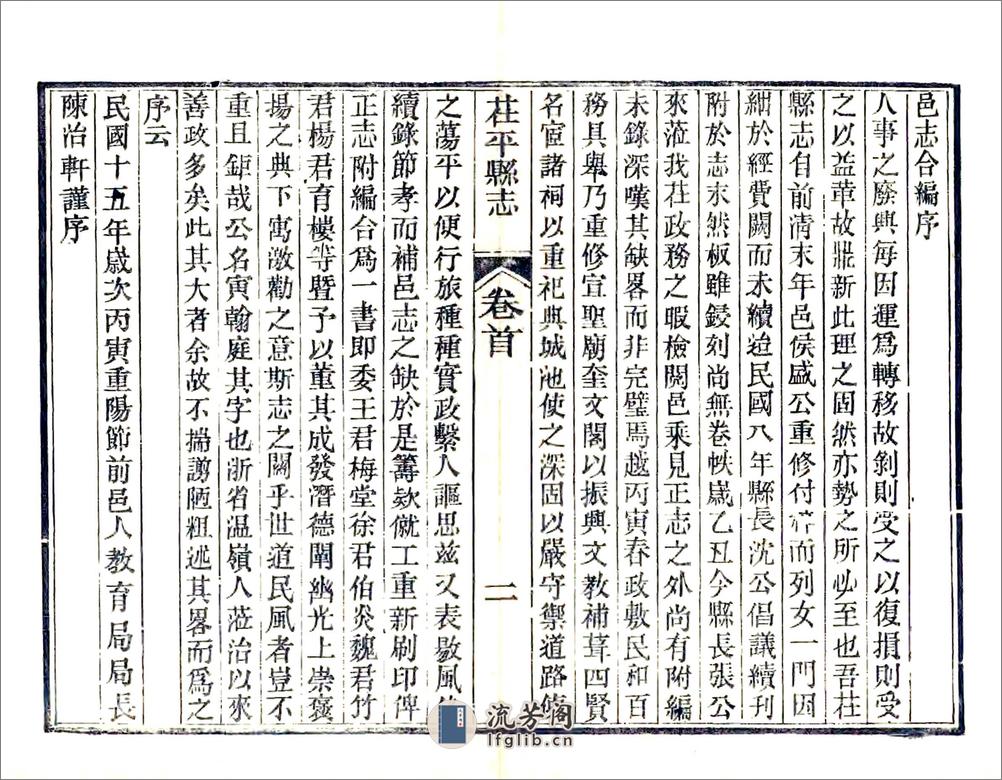 邑志合編序
人事之廢興每因運爲轉移故剝則受之以復損則受
之以益革故鼎新此理之固然亦勢之所必至也吾茌
縣志自前清末年邑侯盛公重修付梓而列女一門因
絀於經費闕而未續迨民國八年縣長沈公倡議續刊
附於志末然板雖鋟刻尚無卷帙歲乙丑今縣長張公
來蒞我茌政務之暇檢閱邑乘見正志之外尚有附編
未錄深嘆其缺畧而非完璧焉越丙寅春政敷民和百
務具舉乃重修宣聖廟奎文閣以振興文教補葺四賢
名宦諸祠以重祀典城池使之深固以嚴守禦道路
茌平縣志
卷首
二
之蕩平以便行旅種種實政繫人謳思茲又表敭風
續錄節孝而補邑志之缺於是籌欵僦工重新刷印俾
正志附編合爲一書即委王君梅堂徐君伯炎魏君竹
君楊君育樓等暨予以董其成發潛德闡幽光上崇褒
揚之典下寓激勸之意斯志之關乎世道民風者豈不
重且鉅哉公名寅翰庭其字也浙省温嶺人蒞治以來
善政多矣此其大者余故不揣謭陋粗述其畧而爲之
序云
民國十五年歲次丙寅重陽節前邑人教育局局長
陳治軒謹序
流芳阁
lfglib.cn